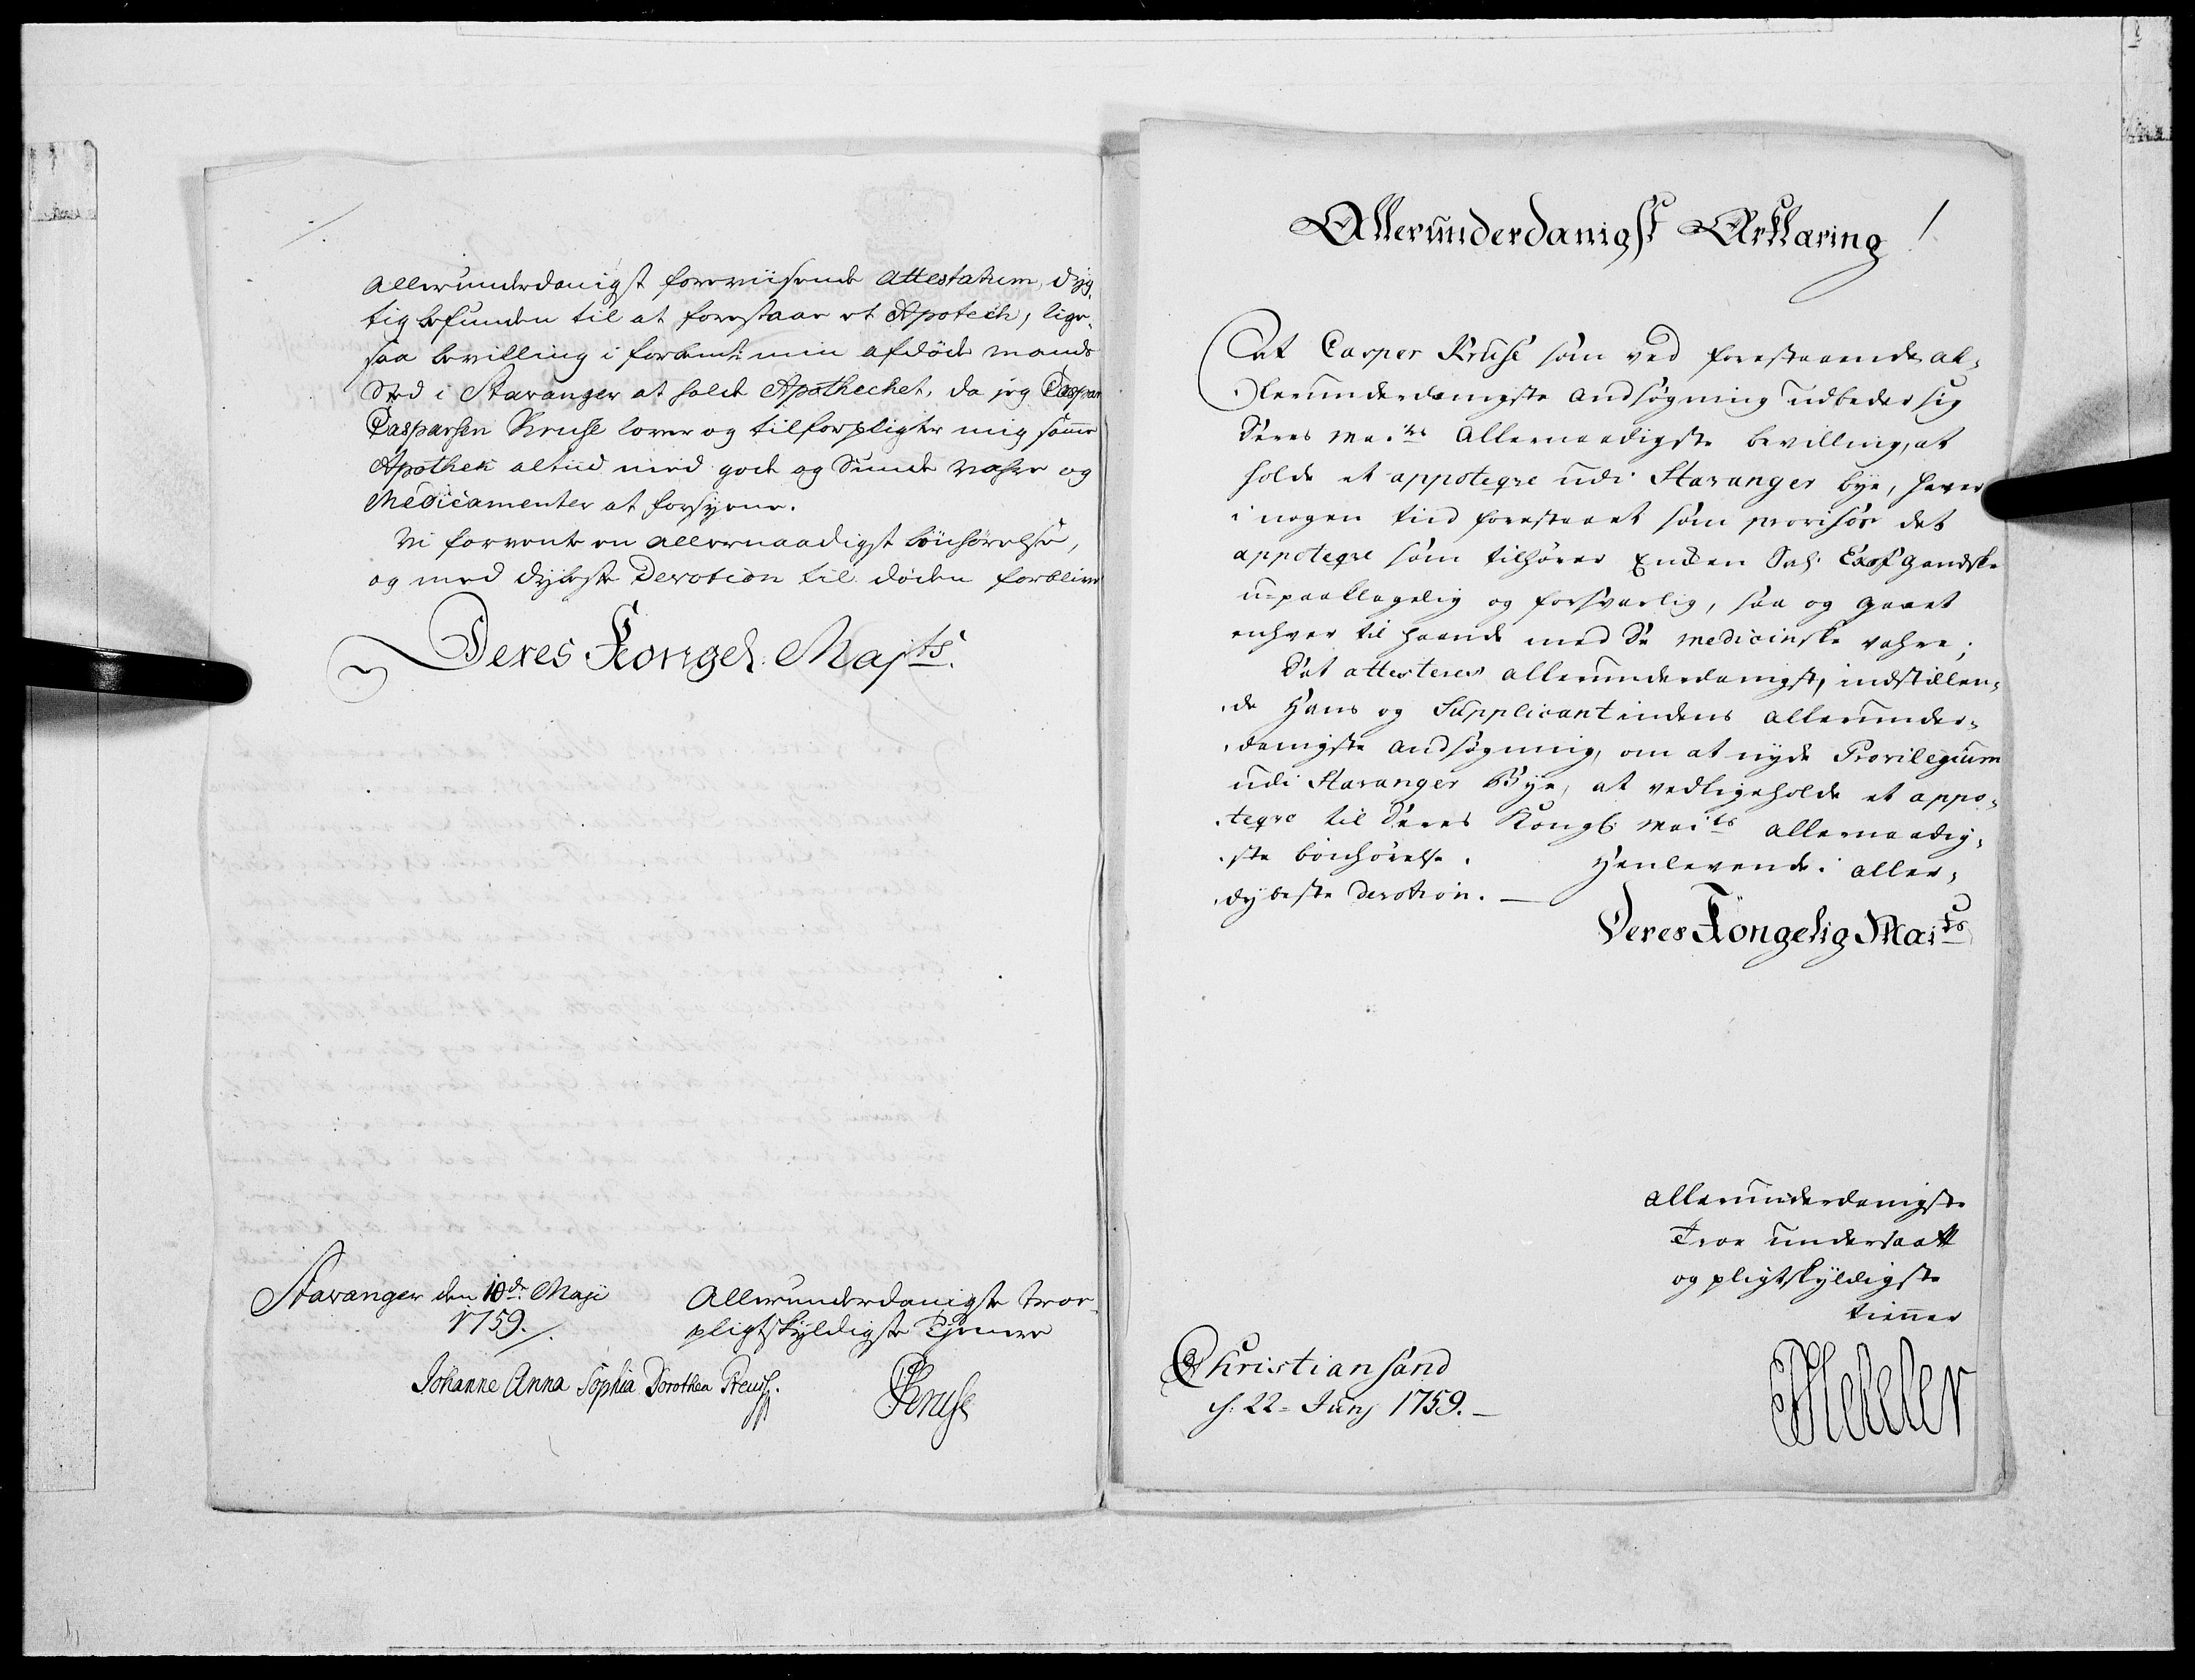 allerunderdanigst foreviisende Attestatum, dyg-
tig befunden til at forestaae et Apotech, lige-
saa bevilling i forbemte min afdöde mands
Sted i Stavanger at holde Apothechet, da jeg Caspar
Casparsen Kruse lover og tilforpligter mig samme
Apothek altiid med gode og Sunde vahre og
Medicamenter at forsyene.
Vi forvente en allernaadigst bönhörelse,
og med dybeste Devotion til döden forblive
Deres Kongel: Majts.
Stavanger den 10de Maji
1759.
Allerunderdanigste troe
pligtskyldigste Tjenere
Johanne Anna Sophia Dorothea
Kruse
Allerunderdanigst Erklæring!
At Casper Kruse som ved forestaaende al-
lerunderdanigste ansögning udbeder sig
Deres Maits Allernaadigste bevilling, at
holde et appoteqve udi Stavanger bye, haver
i nogen tiid forestaaet som provisör det
appoteqve som tilhörer Enken Sal: gandske
u-paaklagelig og forsvarlig, saa og gaaet
enhver til haande med de medicinske vahre;
Det attesteres allerunderdanigst, indstillen-
de Hans og Supplicantindens allerunder-
danigste ansögning, om at nyde Privilegium
udi Stavanger Bye, at vedligeholde et appo-
teqve til Deres Kongl: Maits allernaadig-
ste bönhörelse. Henlevende i aller-
dybeste devotion. —
Deres Kongelig Maits
allerunderdanigste
Troe undersaatt
og pligtskyldigste
tienner
Christiansand
d. 22 = Junj 1759. —